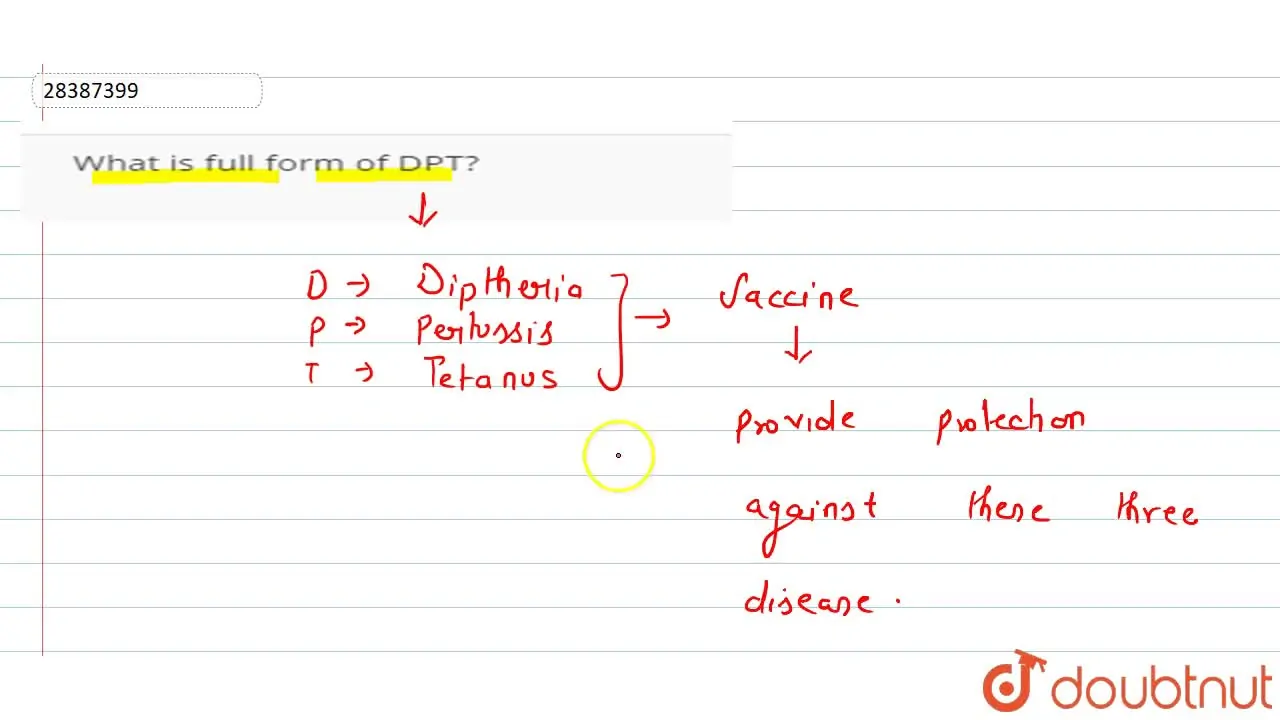 28387399
What is full form of DPT?
D → Diptheria
P → Pertussis
T → Tetanus
→ Vaccine
provide protection
against these three
disease.
doubtnut